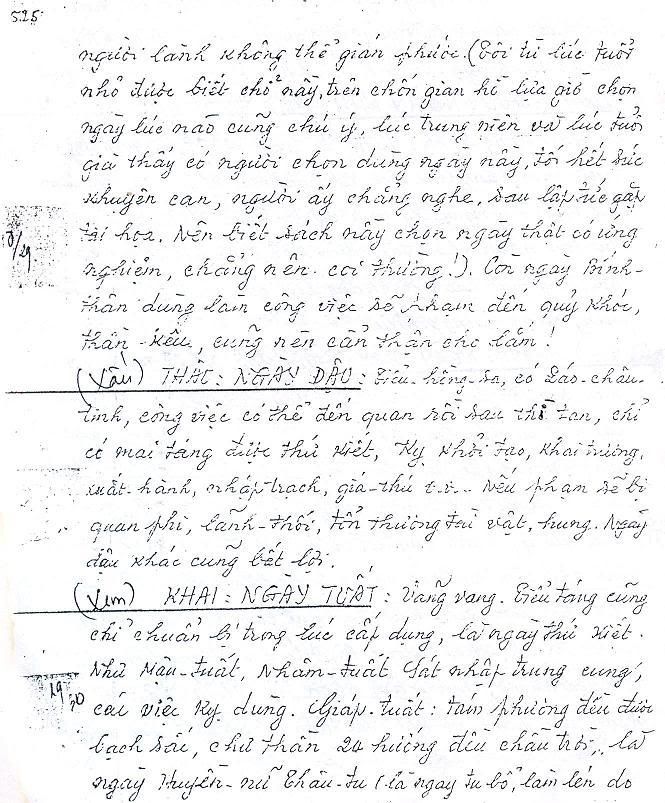 525
người lành không thể gián phước. (Tôi từ lúc tuổi
nhỏ được biết chỗ nầy, trên chốn gian hồ lựa giờ chọn
ngày lúc nào cũng chú ý, lúc trung niên và lúc tuổi
già thấy có người chọn dùng ngày nầy, tôi hết sức
khuyên can, người ấy chẳng nghe, sau lập tức gặp
tai họa. Nên biết sách nầy chọn ngày thật có ứng
nghiệm, chẳng nên coi thường!). Còn ngày Bính-
thân dùng làm công việc sẽ phạm đến quỷ khóc,
thần-kêu, cũng nên cẩn thận cho lắm!
(Xấu) THÂU: NGÀY DẬU: Tiểu-hồng-sa, có Láo-châu-
tinh, công việc có thể đến quan rồi sau thì tan, chỉ
có mai táng được thứ kiết, Kỵ khởi tạo, khai trương,
xuất-hành, nhập trạch, giá-thú v.v... Nếu phạm sẽ bị
quan phi, lãnh-thối, tổn thương tài vật, hung. Ngày
dậu khác cũng bất lợi.
(Xem) KHAI: NGÀY TUẤT: Vãng vang. Tiểu táng cũng
chỉ chuẩn bị trong lúc cấp dụng, là ngày thứ kiết.
Như Mậu-tuất, Nhâm-tuất Sát nhập trung cung,
các việc kỵ dùng. Giáp-tuất: tám phương đều được
bạch sắc, chư thần 24 hướng đều chầu trời, là
ngày Huyền-nữ Thâu-tu (là ngày tu bổ, làm lén do
29
19
30